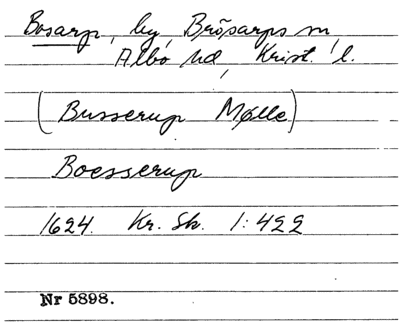 Bosarp, by, Brösarps sn,
Albo hd, Krist. l.
(Busserup Mølle)
Boesserup
1624. Kr. Sk. 1:422
Nr 5898.